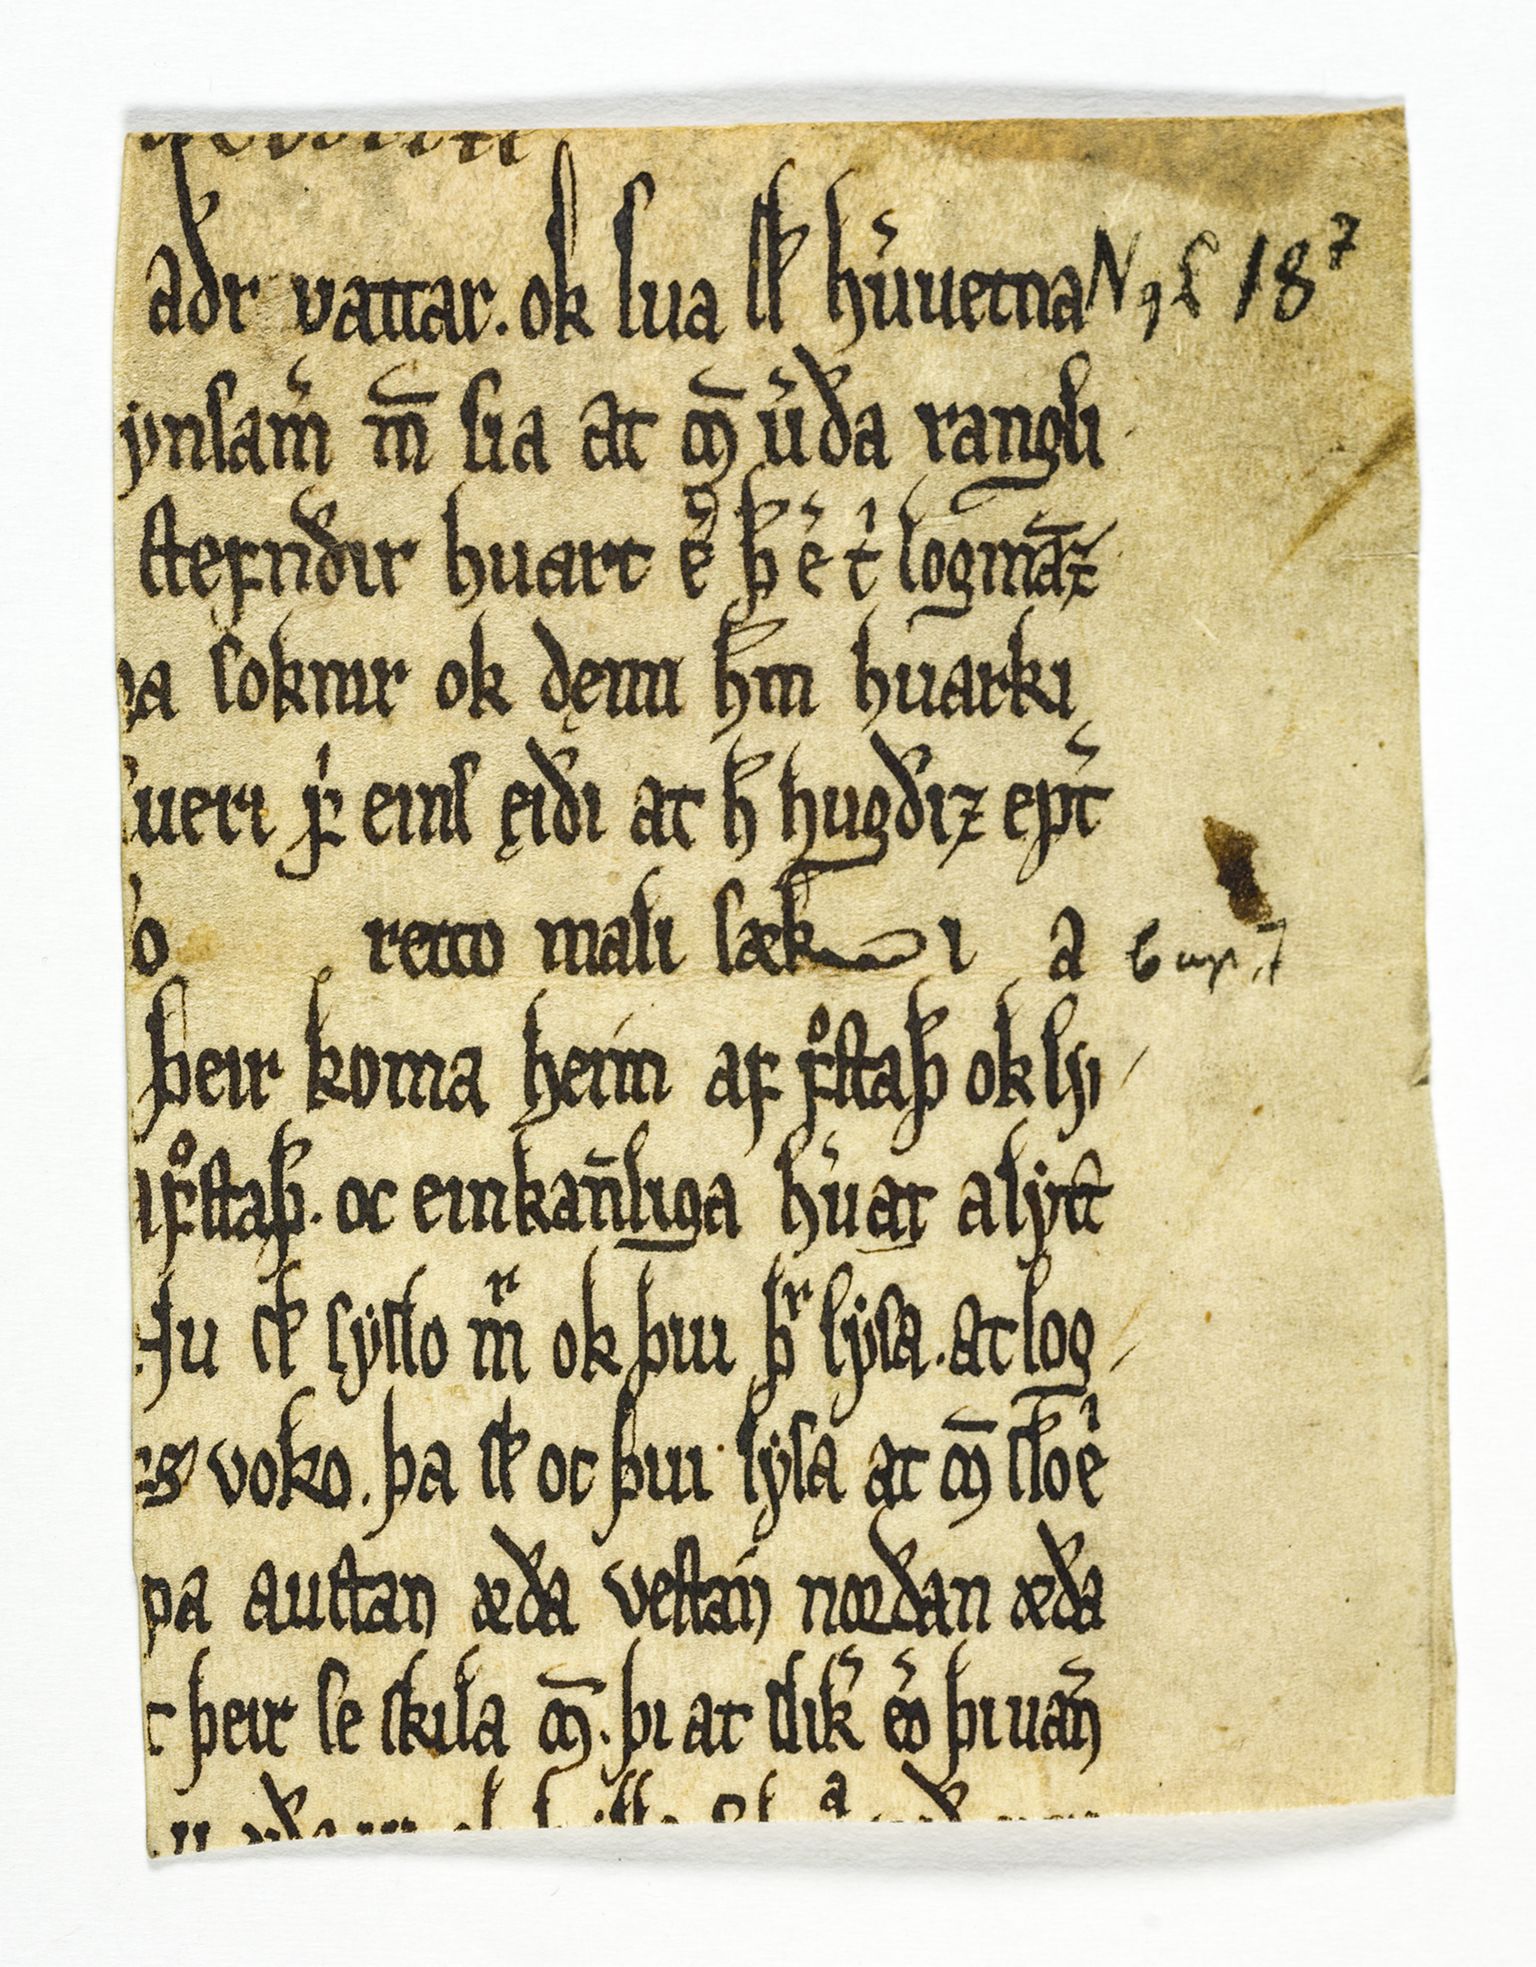 aðr vattar. ok sua sk̅ hu͛uetna N g L 18⁷
ynsam̅ m̅ sia at m̅ u͛ða rangli
stefndir huart e͛ þ̅ e͛ tⁱ logma̅z
a soknir ok dęmi h̅m huarki
sueri fⁱ eins ęiði at h̅ hugðiz ept͛
o retto mali sæk i a cap. 7
þeir koma heim af fͦstaþ ok lysi
ifͦstaþ. oc einkan̅liga hu͛ar alyct
u sk̅ syslo mʳ ok þui þʳ lysa. at log
voko. þa sk̅ oc þui lysa at m̅ sko eⁱ
pa austan æða vestan norðan æða
t þeir se skila m̅. þi at slik͛ e͛o þi uan̅